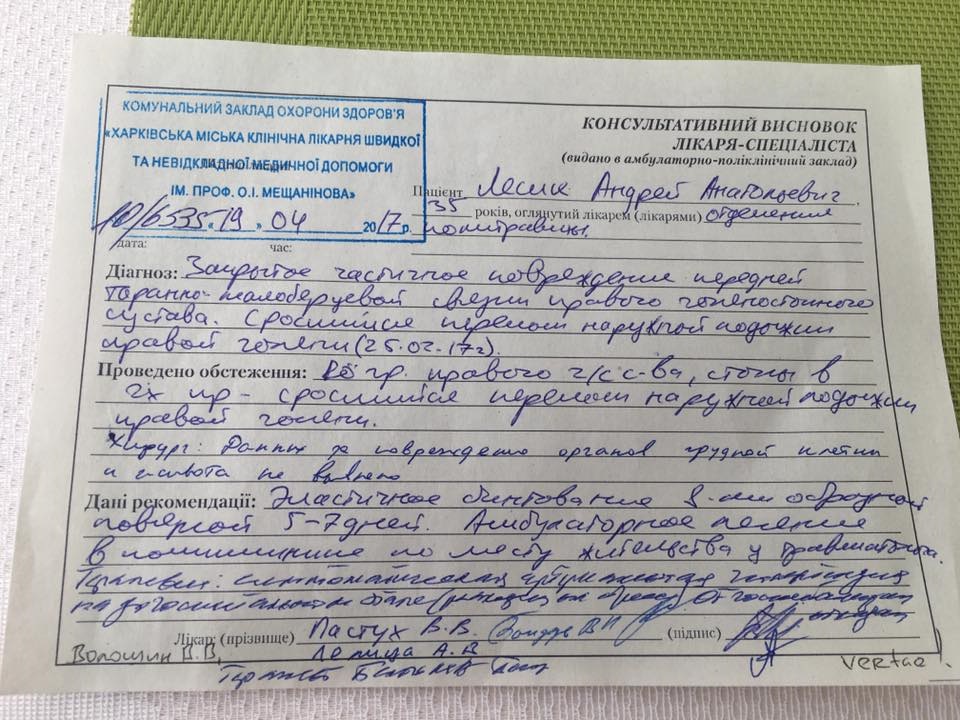 КОМУНАЛЬНИЙ ЗАКЛАД ОХОРОНИ ЗДОРОВ'Я
«ХАРКІВСЬКА МІСЬКА КЛІНІЧНА ЛІКАРНЯ ШВИДКОЇ
ТА НЕВІДКЛАДНОЇ МЕДИЧНОЇ ДОПОМОГИ
ІМ. ПРОФ. О.І. МЕЩАНІНОВА»
10/6535 «19» 04 2017р.
дата: час:
КОНСУЛЬТАТИВНИЙ ВИСНОВОК
ЛІКАРЯ-СПЕЦІАЛІСТА
(видано в амбулаторно-поліклінічний заклад)
Пацієнт Андрей Анатольевич
35 років, оглянутий лікарем (лікарями) отделения
политравмы.
Діагноз: Закрытое частичное повреждение передней
таранно-малоберцовой связки правого голеностопного
сустава. Сросшийся перелом наружной лодыжки
правой голени (25.02.17г).
Проведено обстеження: гр. правого г/с с-ва, стопы в
2х пр - сросшийся перелом наружной лодыжки
правой голени.
Хирург: Данных за повреждение органов грудной клетки
и живота не выявлено
Дані рекомендації: Эластичное бинтование 8-ми образной
повязкой 5-7 дней. Амбулаторное лечение
в поликлинике по месту жительства у травматолога.
Терапевт: артериальная гипертензия
на
Лікар: (прізвище) Пастух В.В. (підпис)
Волошин В.В. А.В
Терапевт
vertae!